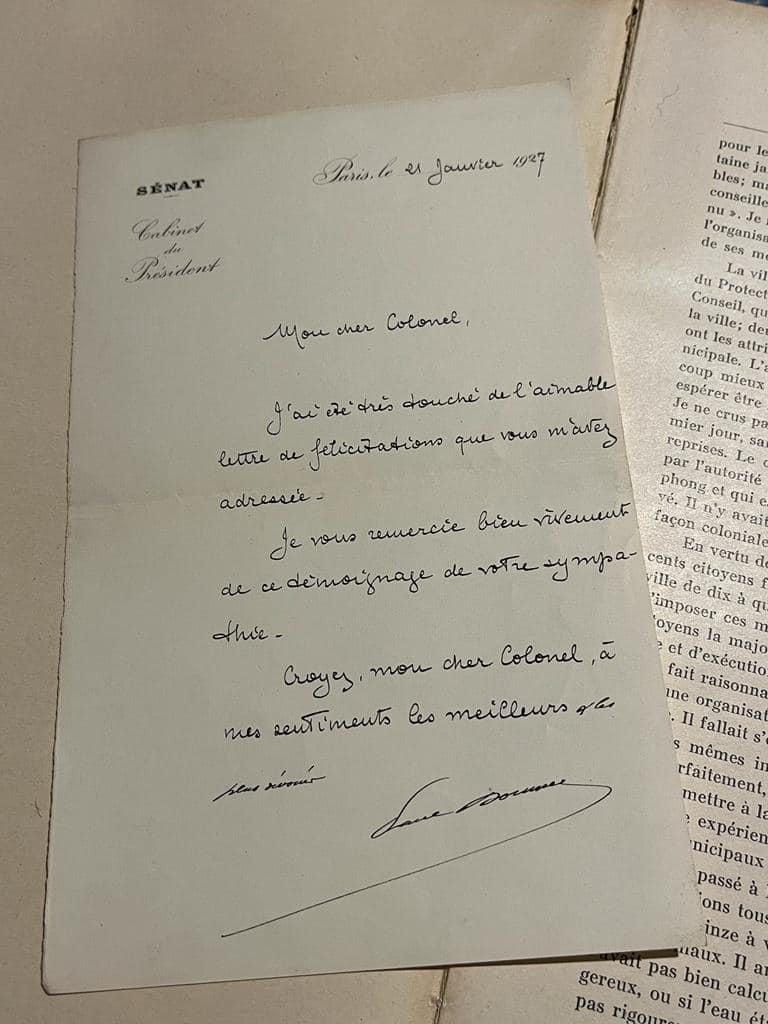 SÉNAT
Cabinet
du
Président
Paris, le 21 Janvier 1927
Mon cher Colonel,
J'ai été très touché de l'aimable
lettre de félicitations que vous m'avez
adressée -
Je vous remercie bien vivement
de ce témoignage de votre sympa-
thie -
Croyez, mon cher Colonel, à
mes sentiments les meilleurs et les
plus dévoués
Paul Doumer
pour le
taine ja
bles; ma
conseille
nu ». Je
l'organisa
de ses me
La vil
du Protect
Conseil, qu
la ville; deu
ont les attri
nicipale. L'a
coup mieux
espérer être
Je ne crus pa
mier jour, sa
reprises. Le c
par l'autorité
phong et qui e
vé. Il n'y avait
façon coloniale
En vertu de
cents citoyens f
ville de dix à qu
'imposer ces m
oyens la majo
et d'exécutio
fait raisonna
ne organisat
. Il fallait s'
s mêmes in
rfaitement,
mettre à la
expérien
nicipaux
passé à
ions tous
inze à v
naux. Il a
avait pas bien calcu
gereux, ou si l'eau ét
pas rigour